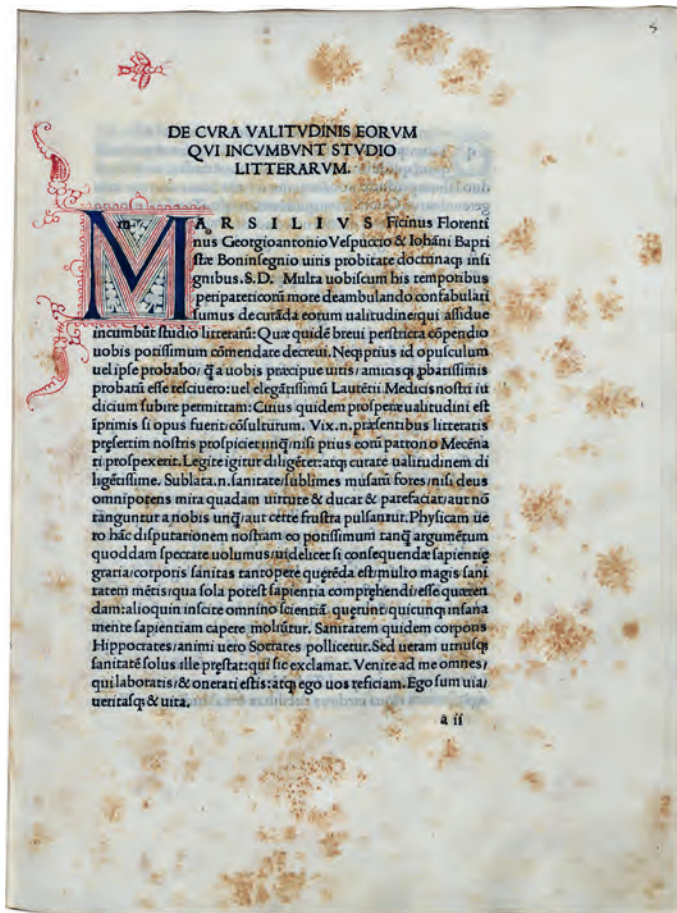 5
DE CVRA VALITVDINIS EORVM
QVI INCVMBVNT STVDIO
LITTERARVM.
MARSILIVS Ficinus Florenti
nus Georgioantonio Vespuccio & Iohāni Bapti
stæ Boninsegnio uiris probitate doctrinaq; insi
gnibus.S.D. Multa uobiscum his temporibus
peripateticorū more deambulando confabulati
sumus de curāda eorum ualitudine/qui assidue
incumbūt studio litterarū: Quæ quidē breui perstricta cōpendio
uobis potissimum cōmendare decreui. Neq; prius id opusculum
uel ipse probabo/ q̄ a uobis præcipue uiris/ amicisq; ꝓbatissimis
probatū esse resciuero: uel elegātissimū Laurētii Medicis nostri iu
dicium subire permittam: Cuius quidem prosperæ ualitudini est
īprimis si opus fuerit cōsulturum. Vix.n.præsentibus litteratis
pręsertim nostris prospiciet unq̄/nisi prius eorū patrono Mecēna
ti prospexerit. Legite igitur diligēter: atq; curate ualitudinem di
ligētissime. Sublata.n.sanitate/sublimes musarū fores/nisi deus
omnipotens mira quadam uirtute & ducat & patefaciat/aut nō
tanguntur a nobis unq̄/aut certe frustra pulsantur. Physicam ue
ro hāc disputationem nostram eo potissimum tanq̄ argumētum
quoddam spectare uolumus/uidelicet si consequendæ sapientię
gratia/corporis sanitas tantopere quęrēda est/multo magis sani
tatem mētis/qua sola potest sapientia comprehendi/esse quæren
dam: alioquin inscite omnino scientiā quęrunt/quicunq; insana
mente sapientiam capere moliūtur. Sanitatem quidem corporis
Hippocrates/animi uero Socrates pollicetur. Sed ueram utriusq;
sanitatē solus ille pręstat: qui sic exclamat. Venite ad me omnes/
qui laboratis/& onerati estis: atq; ego uos reficiam. Ego sum uia/
ueritasq; & uita.
a ii